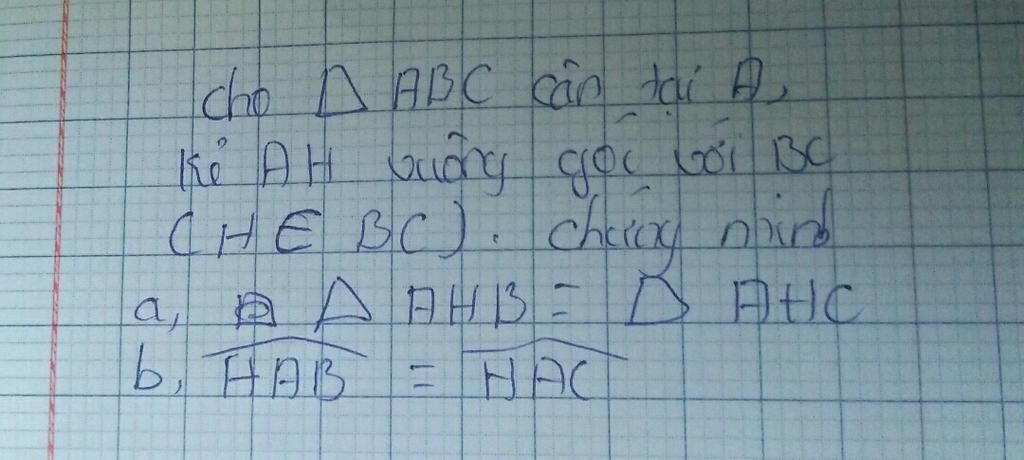 cho Δ ABC cân tại A,
Kẻ AH vuông góc với BC
(H ∈ BC). chứng minh
a, Δ AHB = Δ AHC
b, \widehat{HAB} = \widehat{HAC}